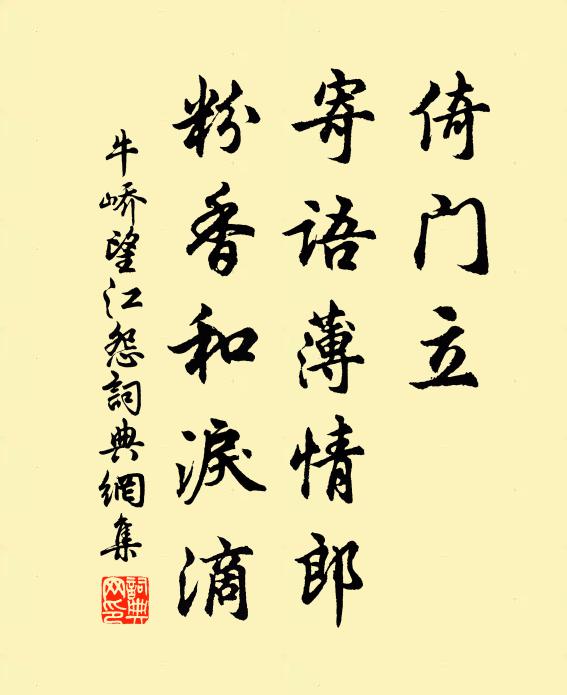 倚门立
寄语薄情郎
粉香和淚滴
牛峤望江怨詞典網集
詞典网印